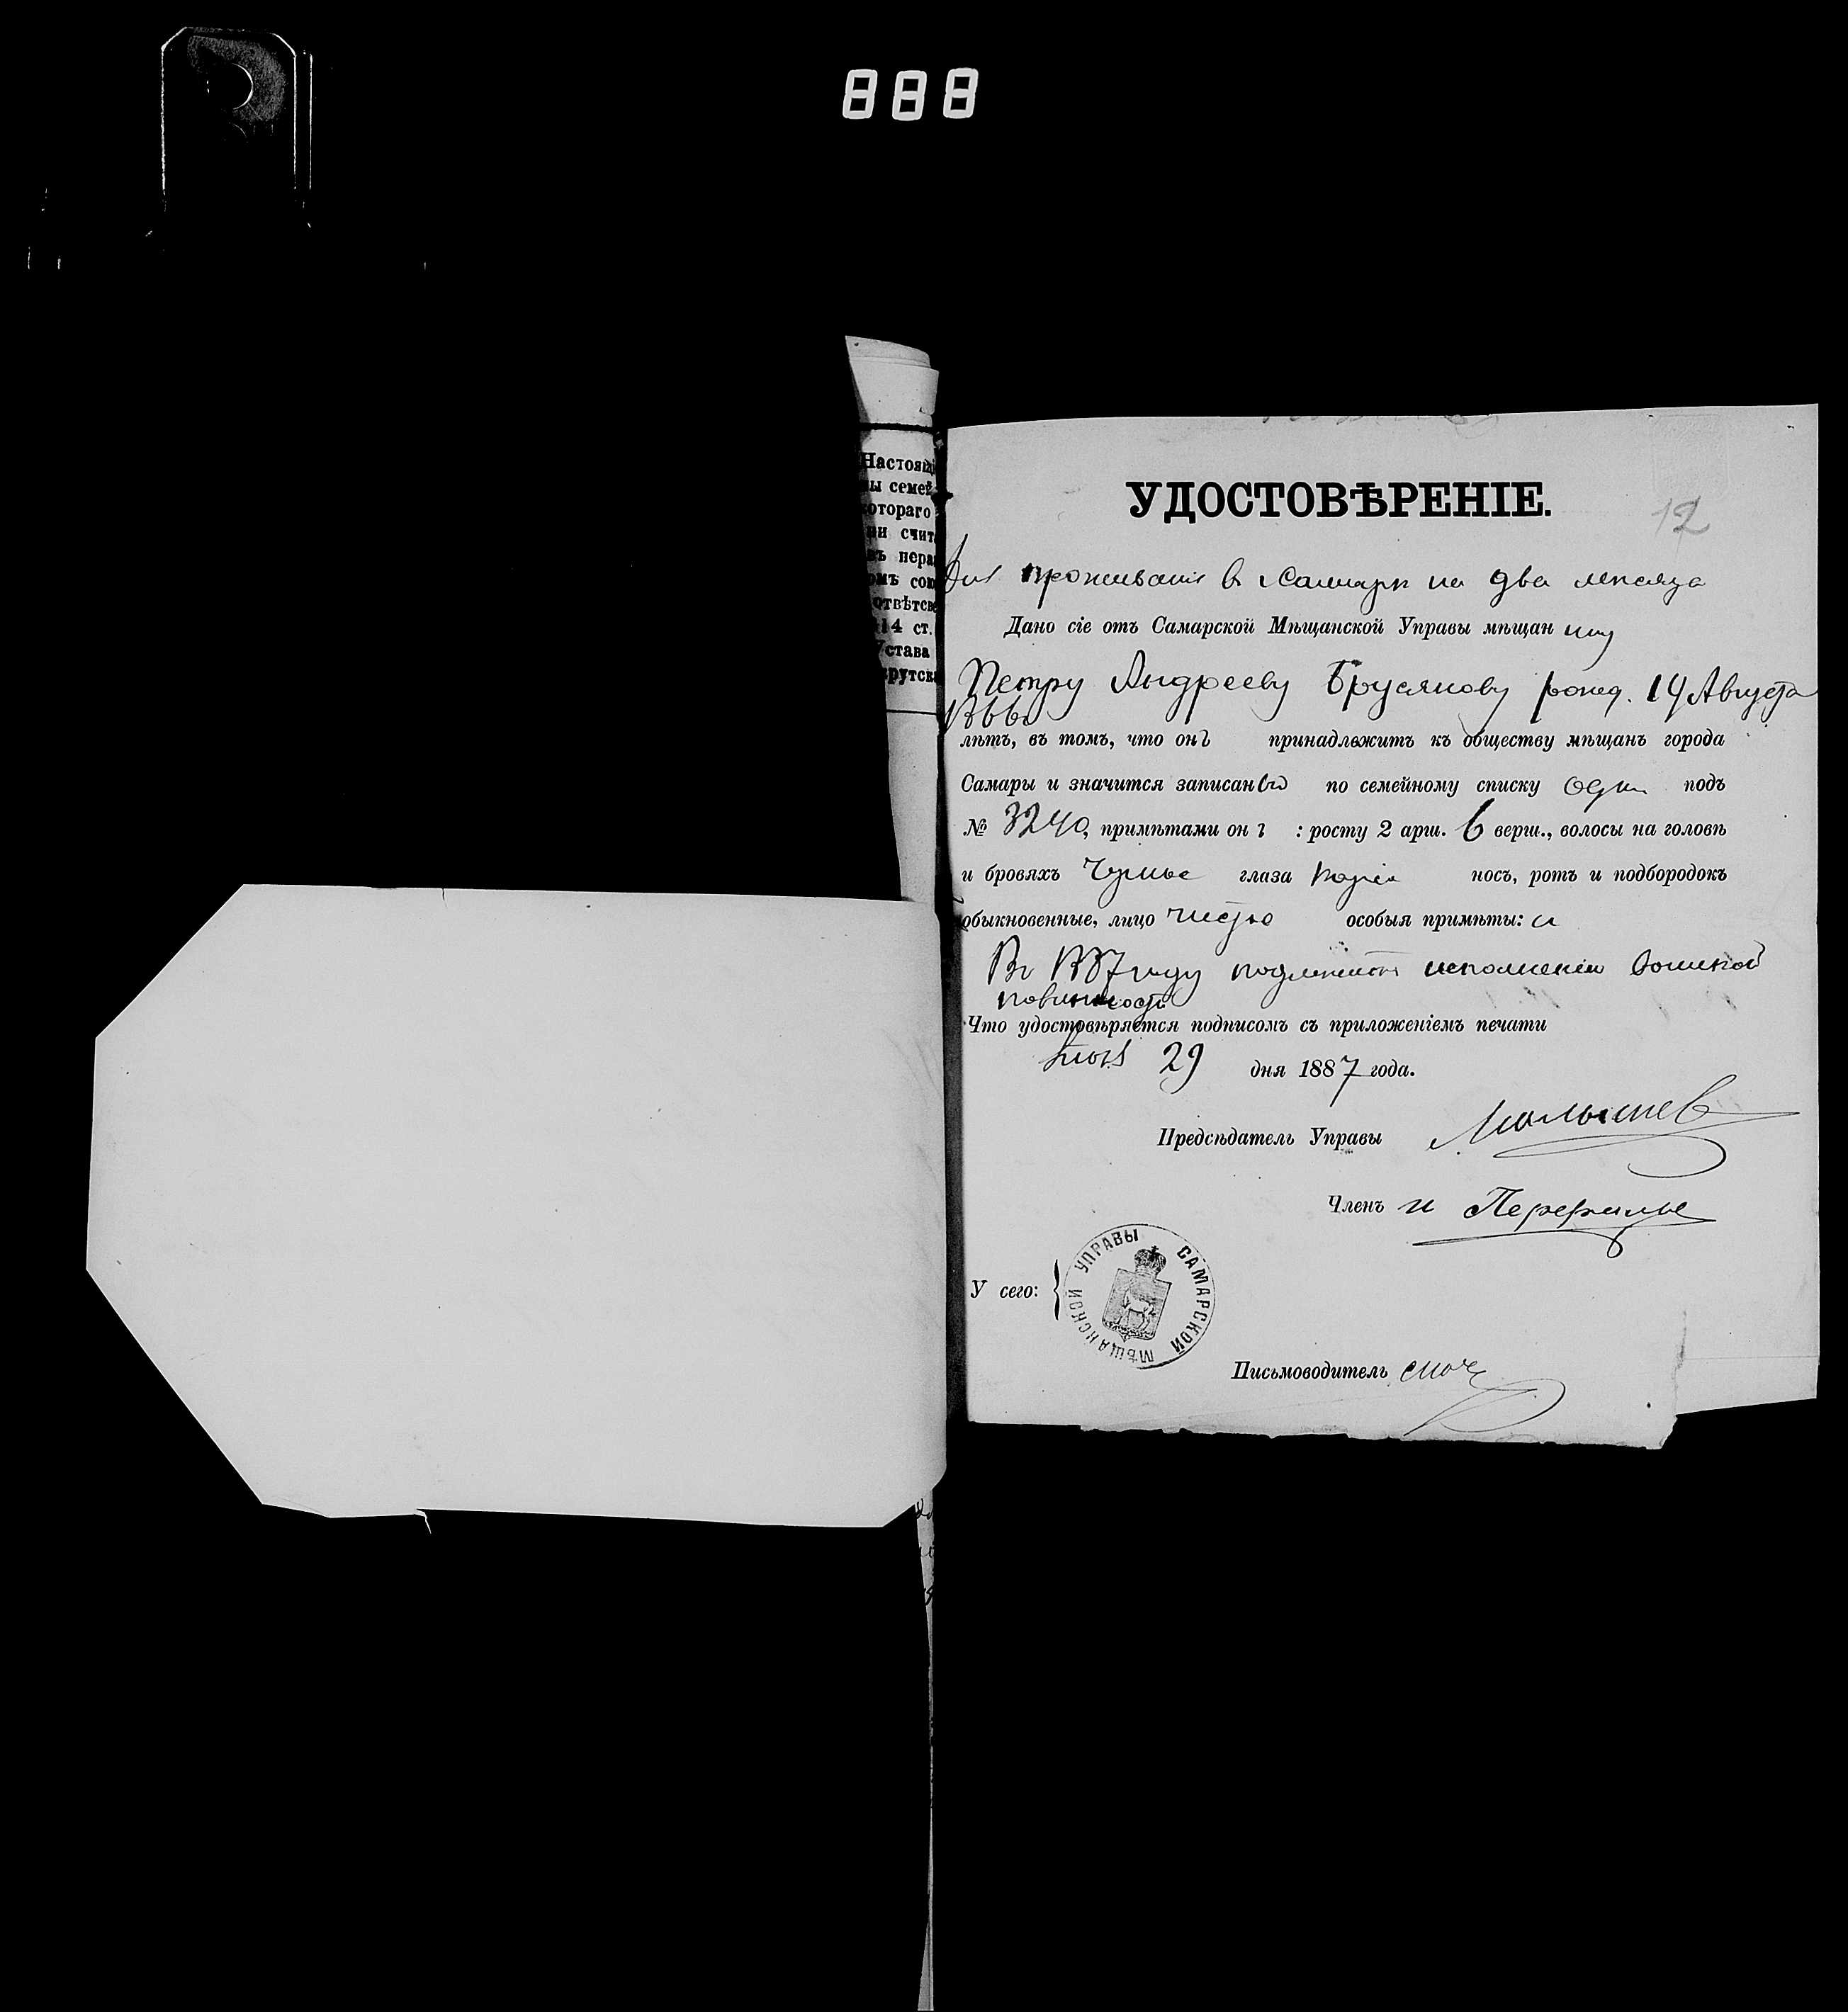 888
Настоящі
ы семей
отораго
ни счит
ъ пера
омъ сою
отвѣтсве
14 ст.
Устава
крутска
УДОСТОВѢРЕНІЕ.
12
Для проживанія в Самарѣ на два мѣсяца
Дано сіе отъ Самарской Мѣщанской Управы мѣщанину
Петру Андрееву Брусянову рожд. 14 Августа
1866
лѣтъ, въ томъ, что онъ принадлежитъ къ обществу мѣщанъ города
Самары и значится записанъ по семейному списку подъ
№ 3240, примѣтами онъ: росту 2 арш. 6 верш., волосы на головѣ
и бровяхъ Черные глаза Каріе носъ, ротъ и подбородокъ
обыкновенные, лицо чисто особыя примѣты:
Въ 1887 году подлежитъ исполненію воинской
повинности
Что удостовѣряется подписомъ съ приложеніемъ печати
Іюля 29 дня 1887 года.
Предсѣдатель Управы Малышев
Членъ
У сего:
САМАРСКОЙ МѢЩАНСКОЙ УПРАВЫ
Письмоводитель